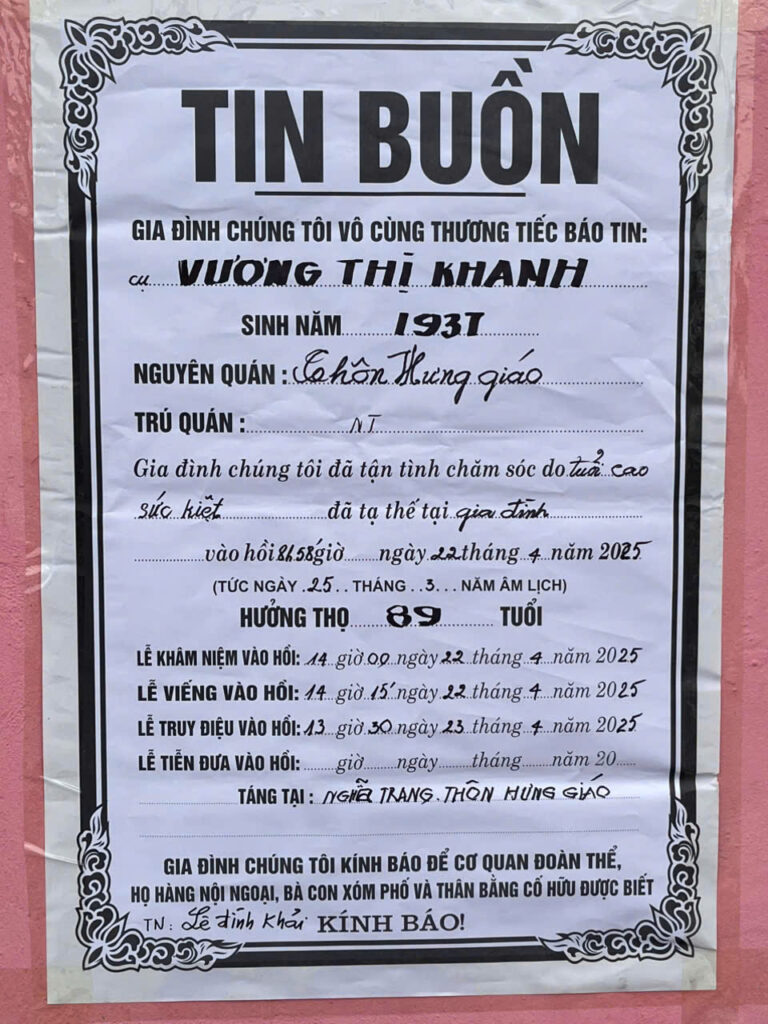 TIN BUỒN
GIA ĐÌNH CHÚNG TÔI VÔ CÙNG THƯƠNG TIẾC BÁO TIN:
cụ VƯƠNG THỊ KHANH
SINH NĂM 1937
NGUYÊN QUÁN : Thôn Hưng giáo
TRÚ QUÁN : NT
Gia đình chúng tôi đã tận tình chăm sóc do tuổi cao
sức kiệt đã tạ thế tại gia đình
vào hồi 8h58' giờ ngày 22 tháng 4 năm 2025
(TỨC NGÀY 25 THÁNG 3 NĂM ÂM LỊCH)
HƯỞNG THỌ 89 TUỔI
LỄ KHÂM NIỆM VÀO HỒI: 14 giờ 00 ngày 22 tháng 4 năm 2025
LỄ VIẾNG VÀO HỒI: 14 giờ 15' ngày 22 tháng 4 năm 2025
LỄ TRUY ĐIỆU VÀO HỒI: 13 giờ 30 ngày 23 tháng 4 năm 2025
LỄ TIỄN ĐƯA VÀO HỒI: giờ ngày tháng năm 20
TÁNG TẠI : NGHĨA TRANG. THÔN HƯNG GIÁO
GIA ĐÌNH CHÚNG TÔI KÍNH BÁO ĐỂ CƠ QUAN ĐOÀN THỂ,
HỌ HÀNG NỘI NGOẠI, BÀ CON XÓM PHỐ VÀ THÂN BẰNG CỐ HỮU ĐƯỢC BIẾT
TN: Lê đình Khải KÍNH BÁO!